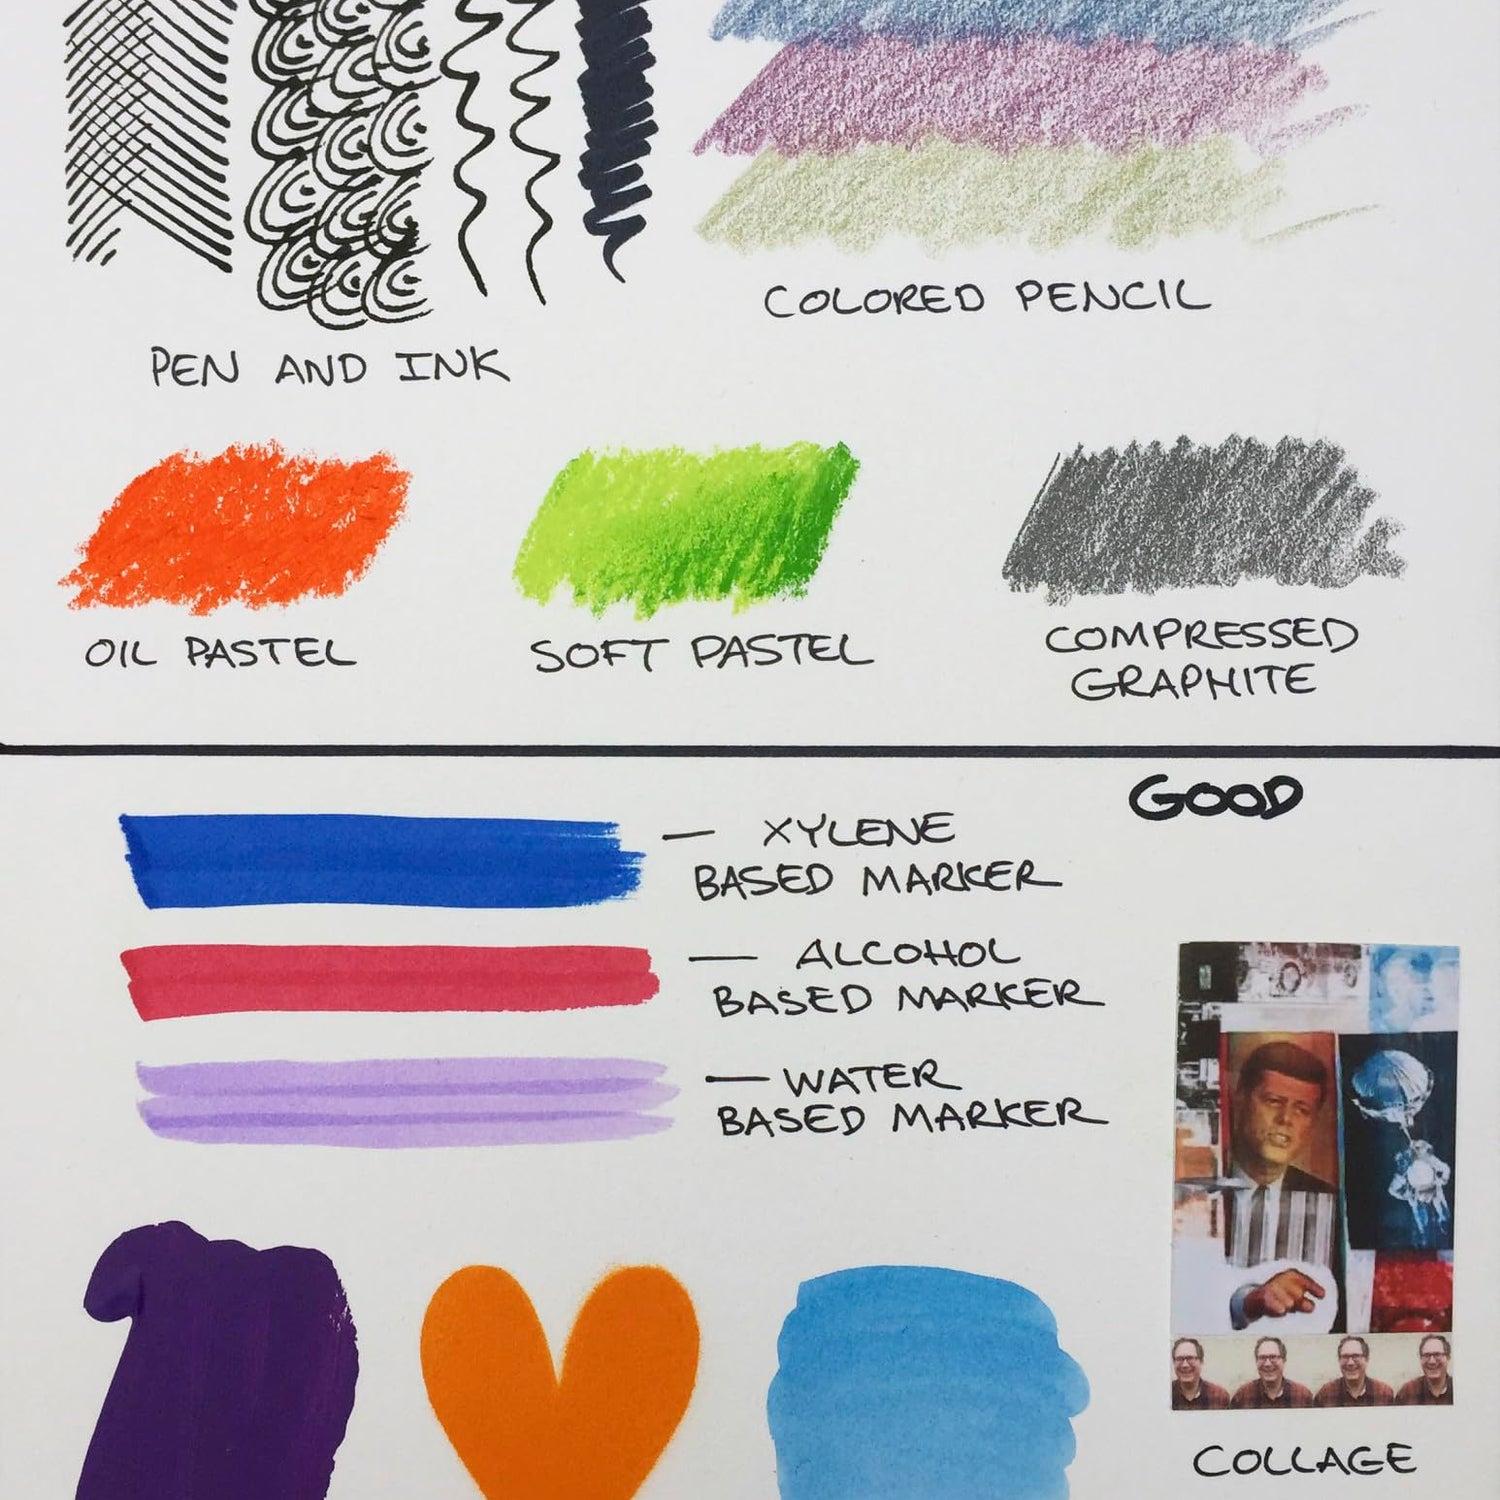 COLORED PENCIL
PEN AND INK
OIL PASTEL
SOFT PASTEL
COMPRESSED
GRAPHITE
GOOD
— XYLENE
BASED MARKER
— ALCOHOL
BASED MARKER
— WATER
BASED MARKER
COLLAGE